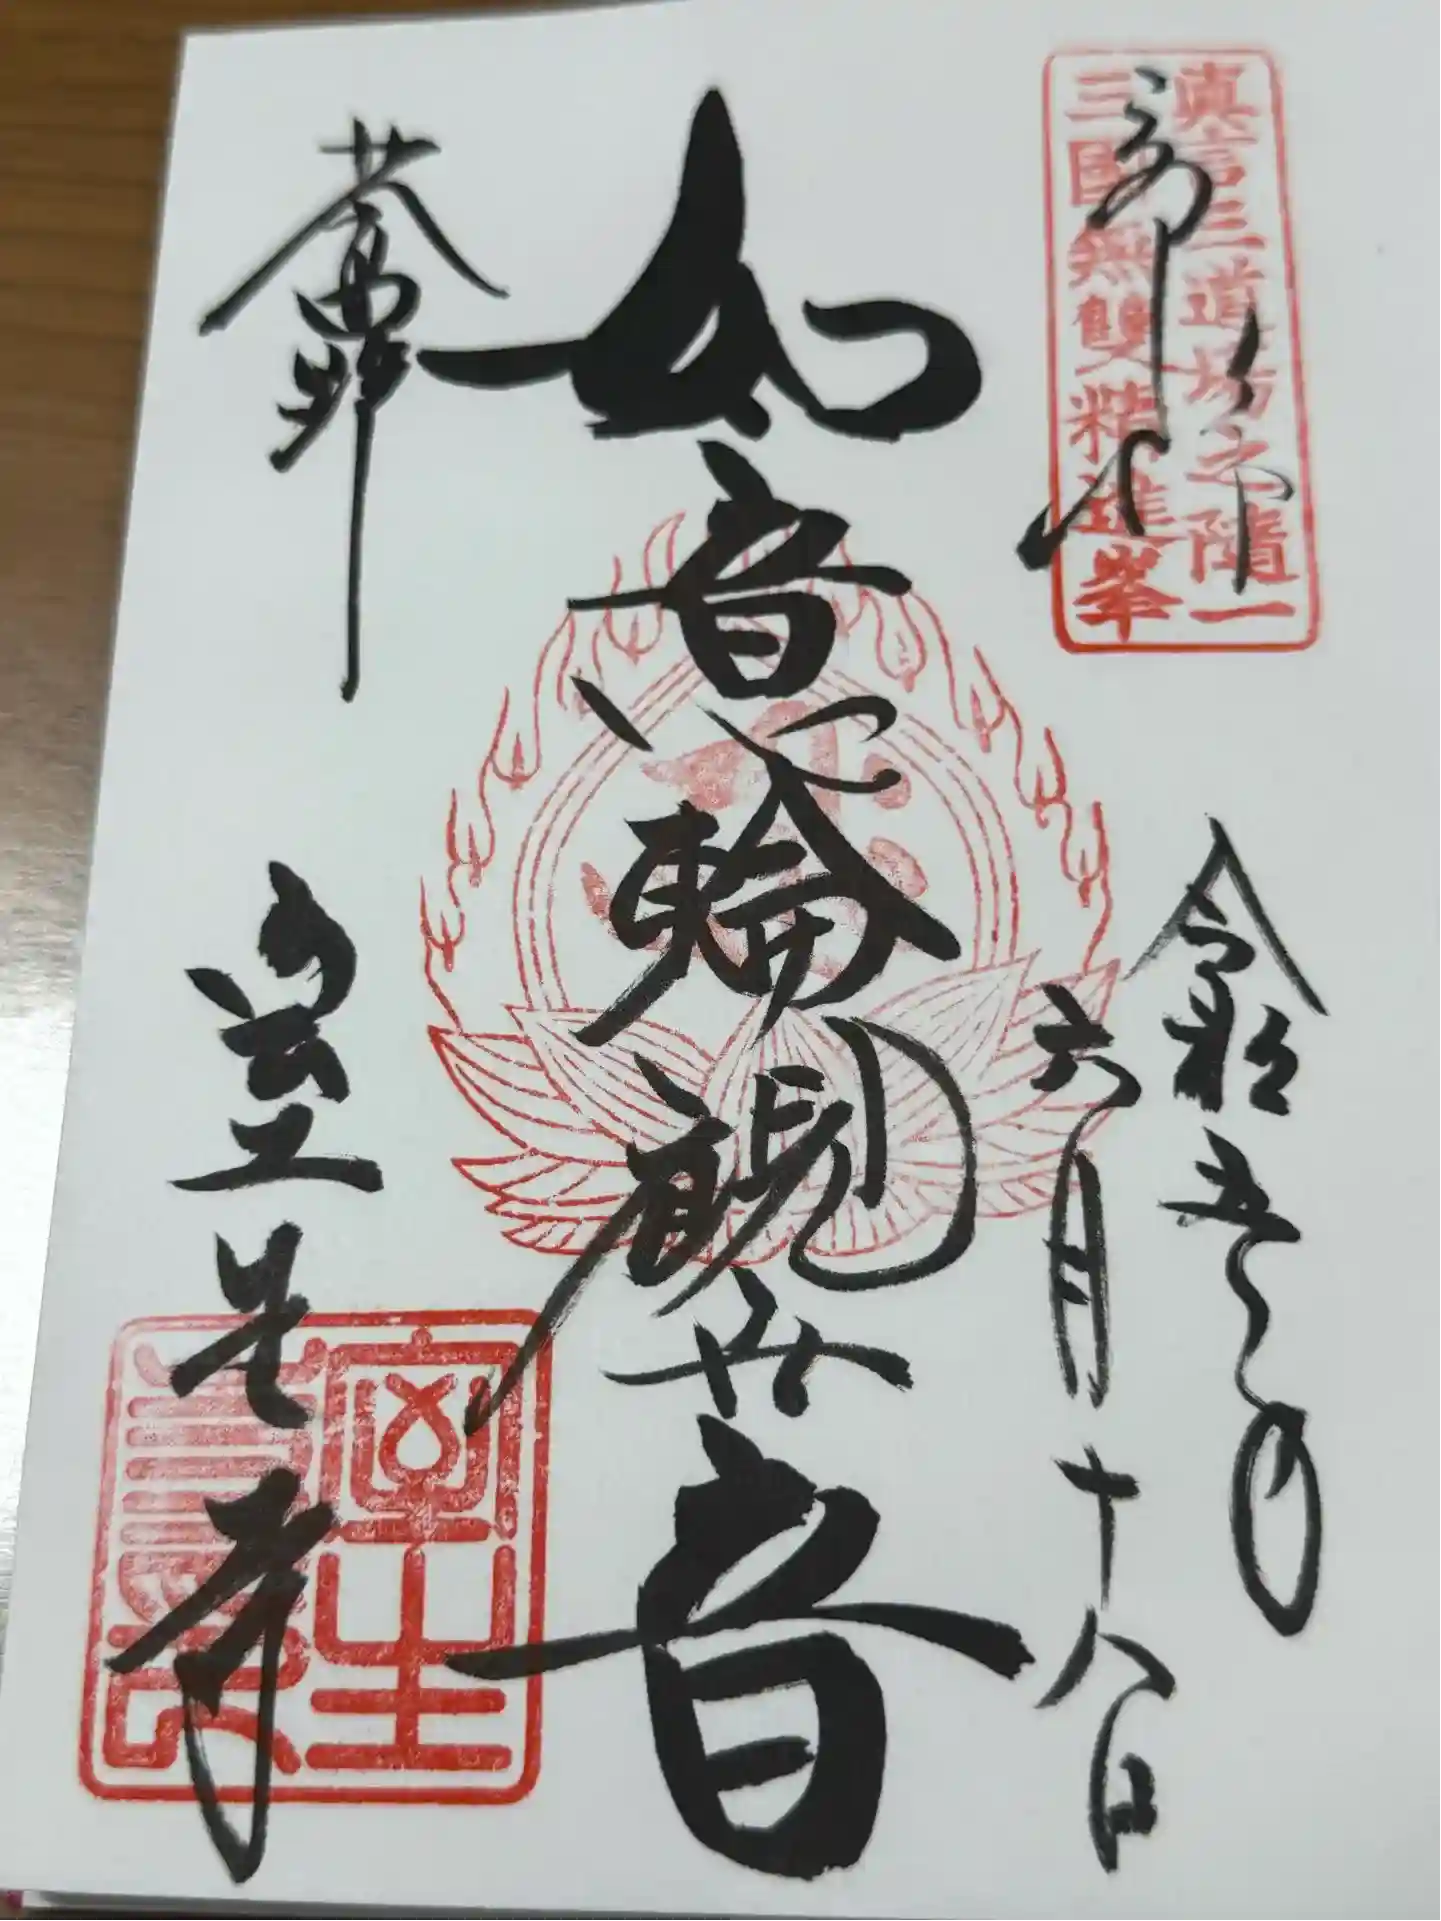 真言三道場之隨一
三國無雙精進峯
令和五年
六月十八日
如意輪観世音
室生寺